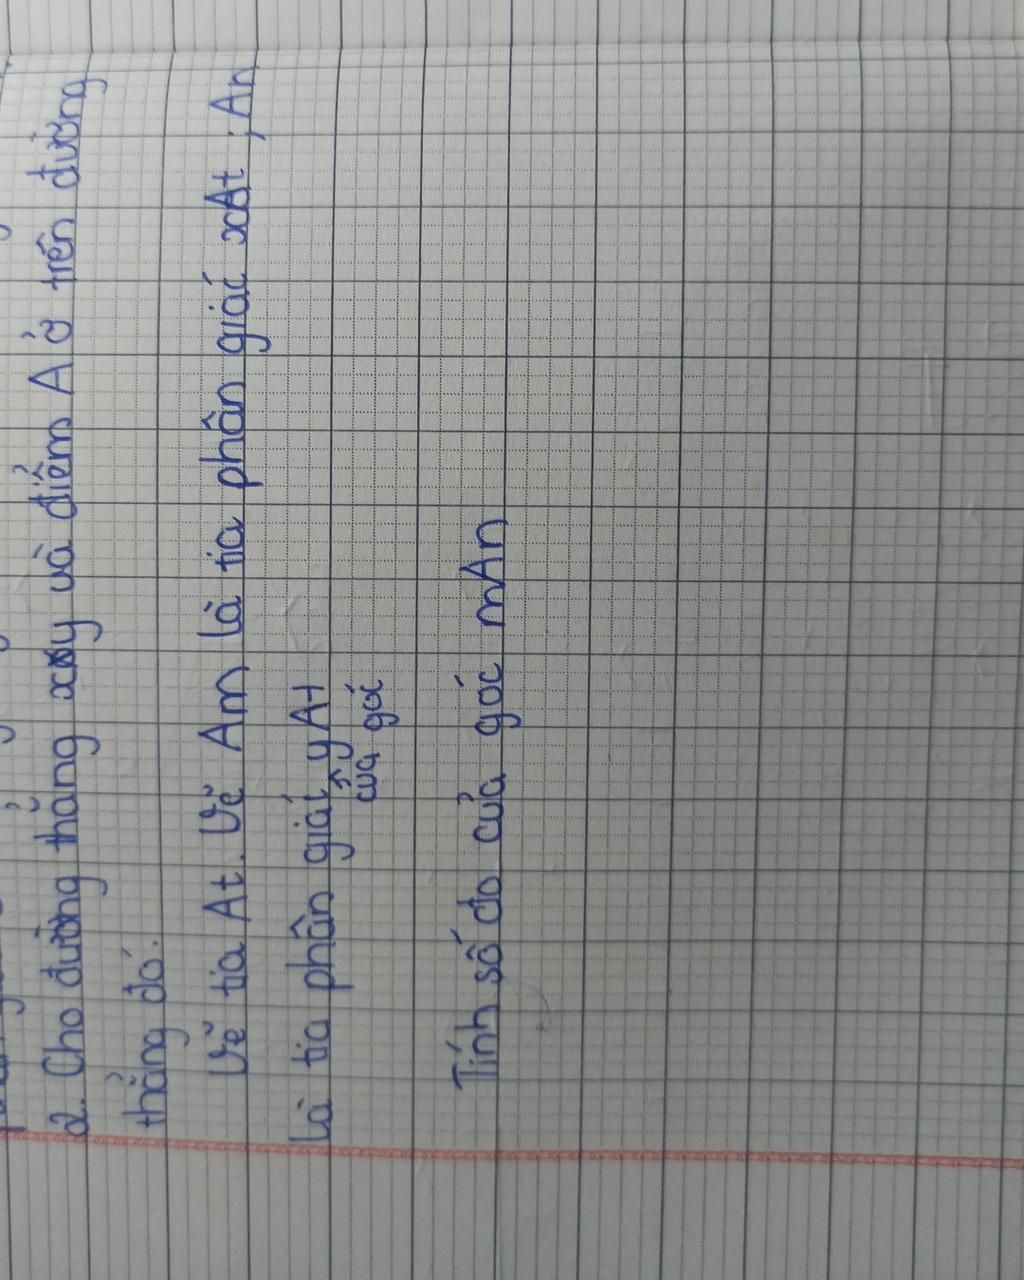 2. Cho đường thẳng xy và điểm A ở trên đường
thẳng đó.
Vẽ tia At. Vẽ Am là tia phân giác xAt ; An
là tia phân giác yAt
của gó
Tính số đo của góc mAn